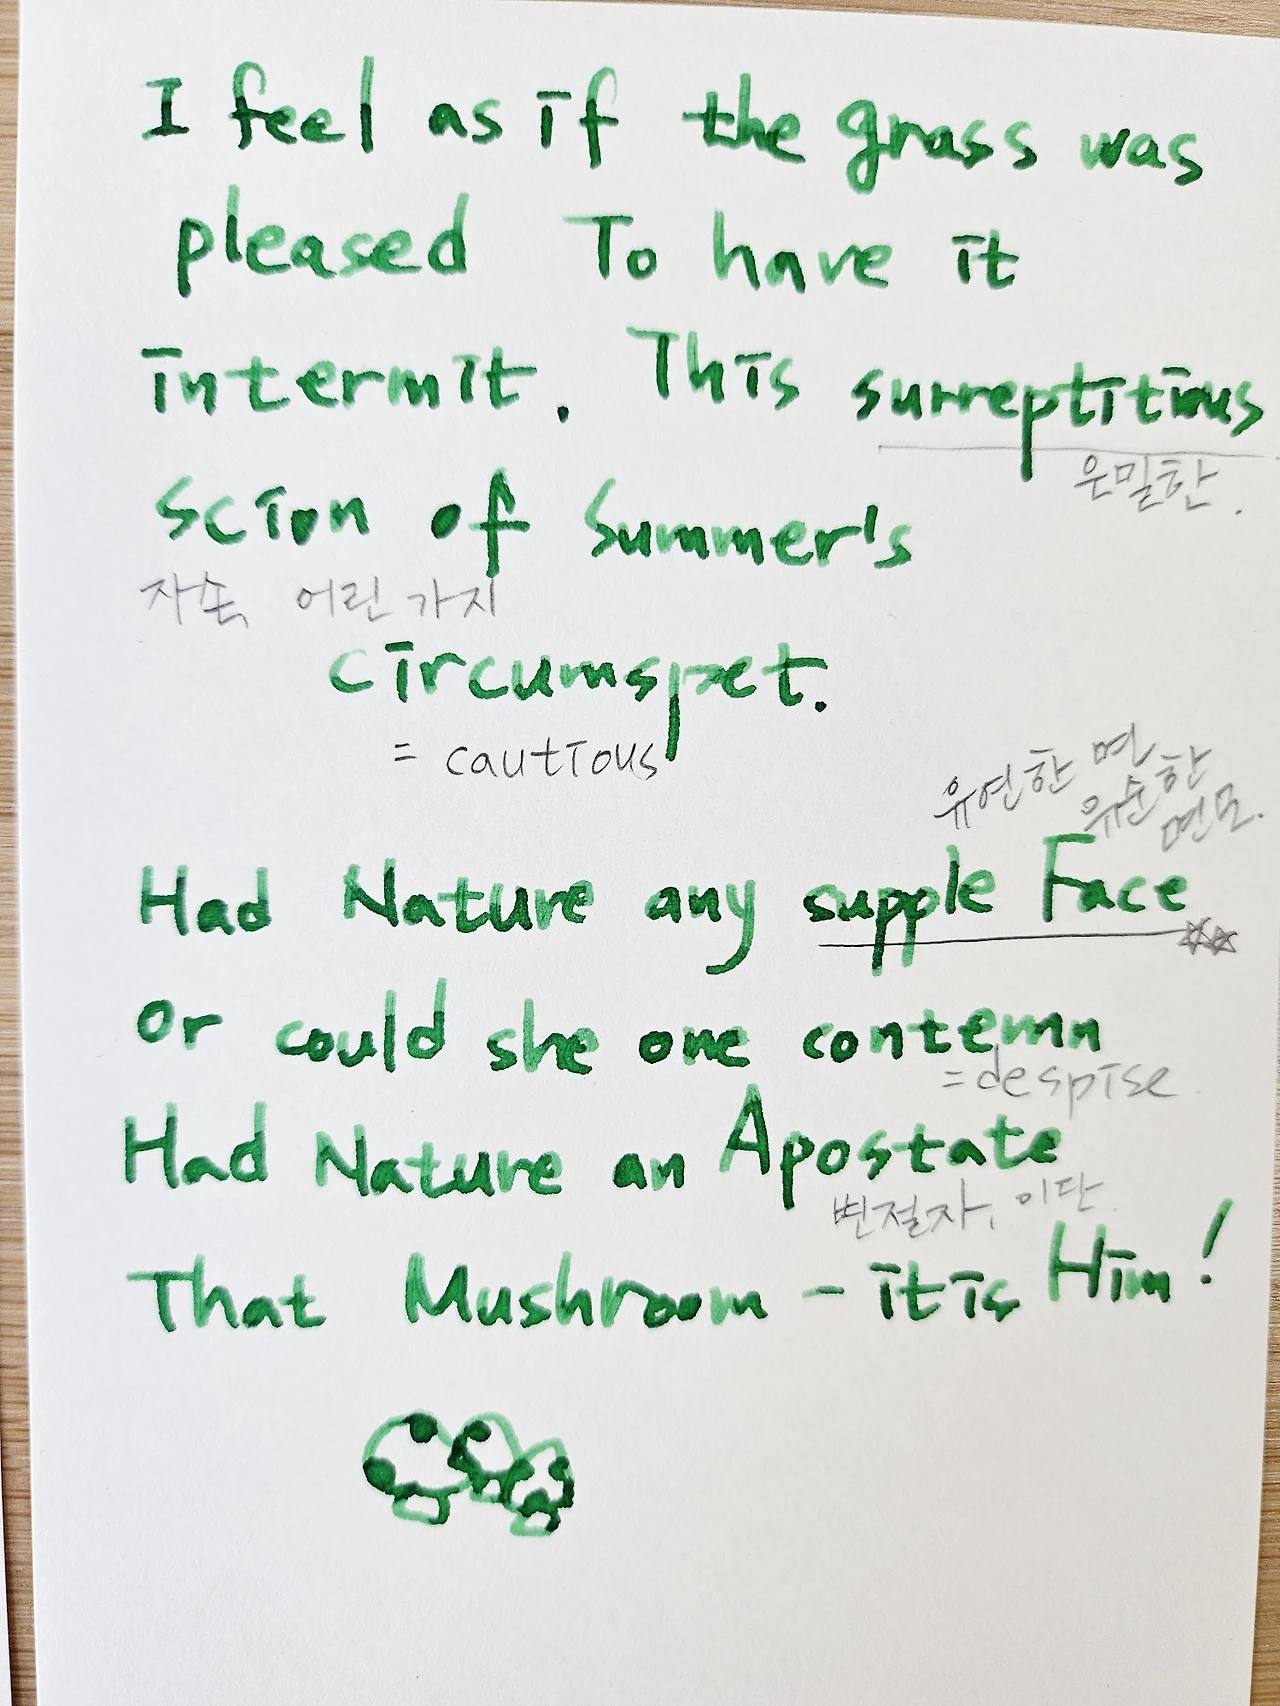 I feel as if the grass was
pleased To have it
intermit. This surreptitious
은밀한.
scion of Summer's
자손, 어린 가지
circumspet.
= cautious
유연한 면
유순한
면모.
Had Nature any supple Face
Or could she one contemn
= despise
Had Nature an Apostate
변절자, 이단
That Mushroom - it is Him!